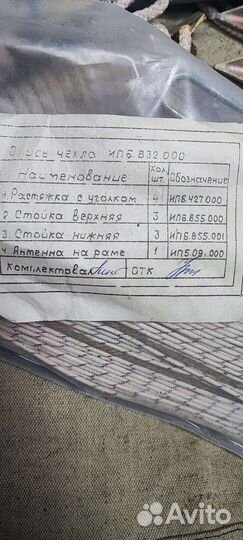 Опись чехла ИП6.832.000
Наименование Кол. шт. Обозначение
1. Растяжка с уголком 4 ИП6.427.000
2. Стойка верхняя 3 ИП6.855.000
3. Стойка нижняя 3 ИП6.855.001
4. Антенна на раме 1 ИП5.09 .000
Комплектовал ОТК
Avito